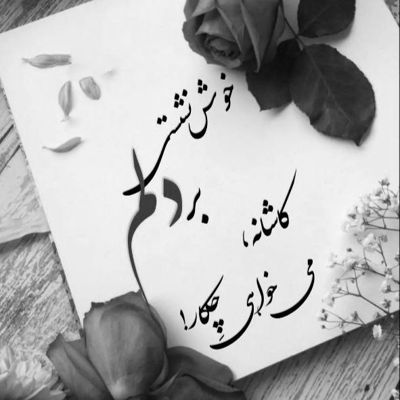 خوش نشستی
بر دلم
کاشانه،
می خوای چکار!